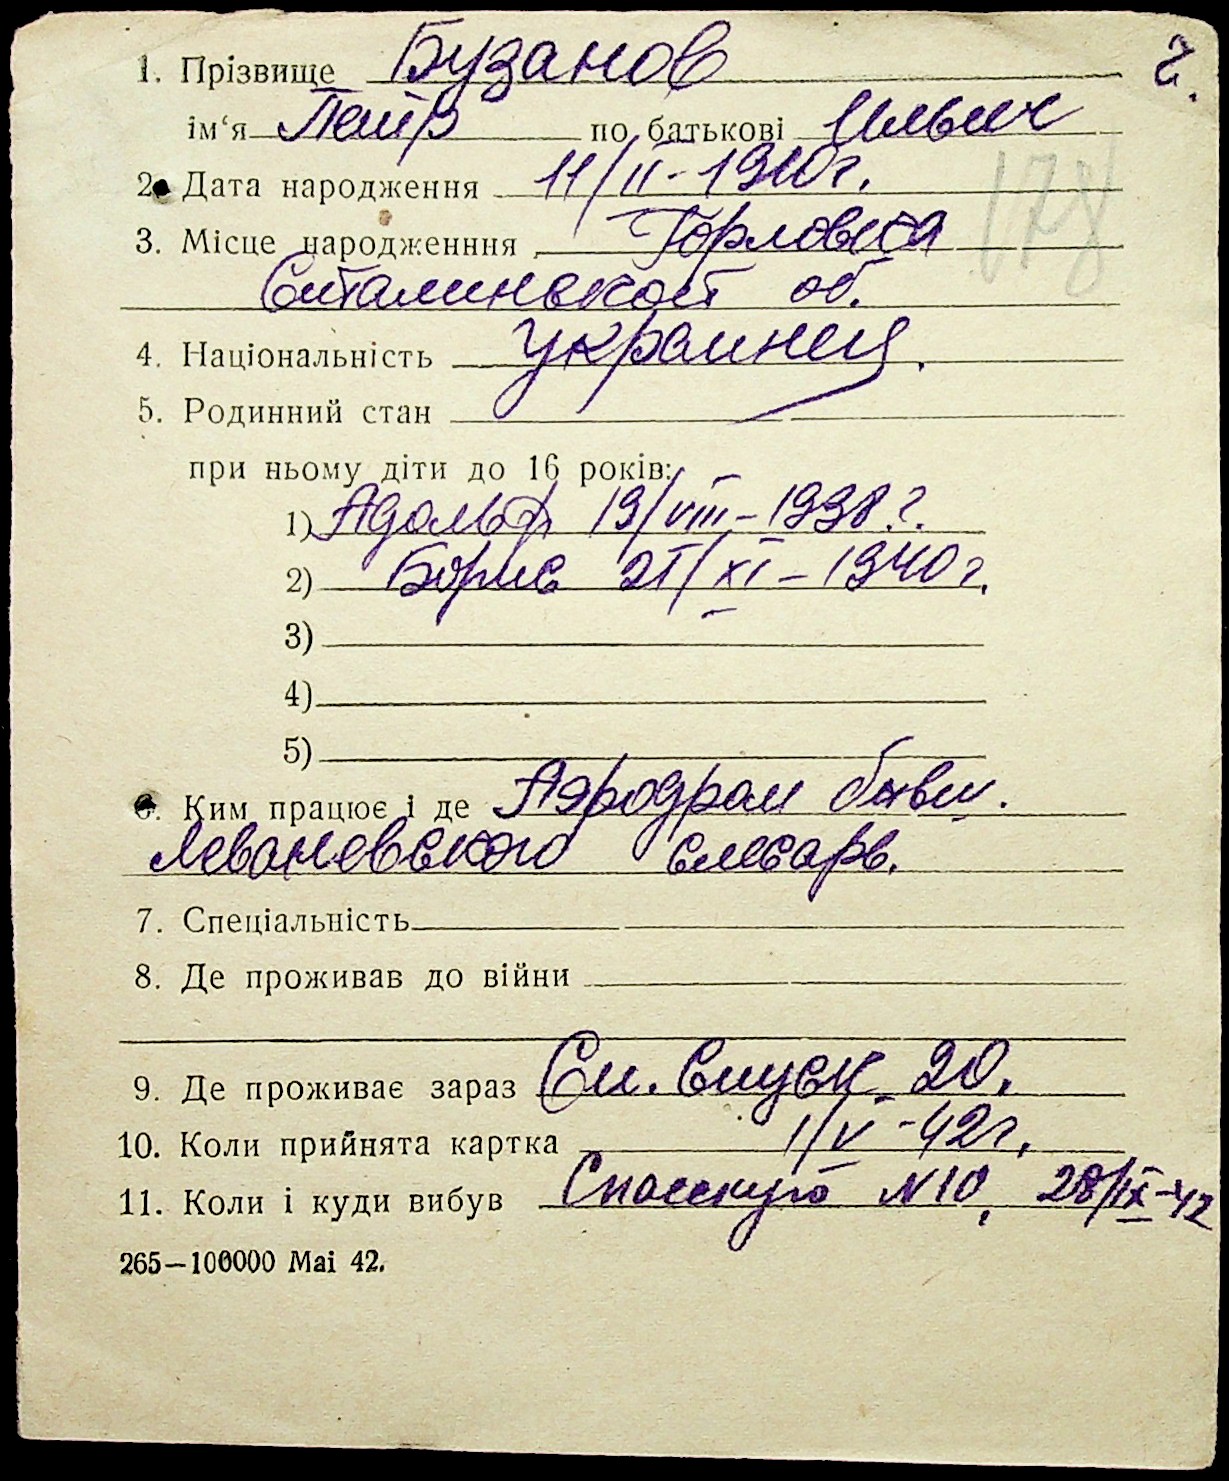 1. Прізвище Бузанов 2.
ім‘я Петр по батькові Ильич
2. Дата народження 11/II-1910г.
178
3. Місце народженння Горловка
Сталинской об.
4. Національність украинец.
5. Родинний стан
при ньому діти до 16 років:
1) Адольф 19/VIII-1938.г.
2) Борис 21/XI-1940г.
3)
4)
5)
6. Ким працює і де Аэродром бывш.
Левановского слесарь.
7. Спеціальність
8. Де проживав до війни
9. Де проживає зараз См. Спуск 20.
10. Коли прийнята картка 1/V-42г.
11. Коли і куди вибув Спасскую N10, 28/IX-42
265—100000 Mai 42.